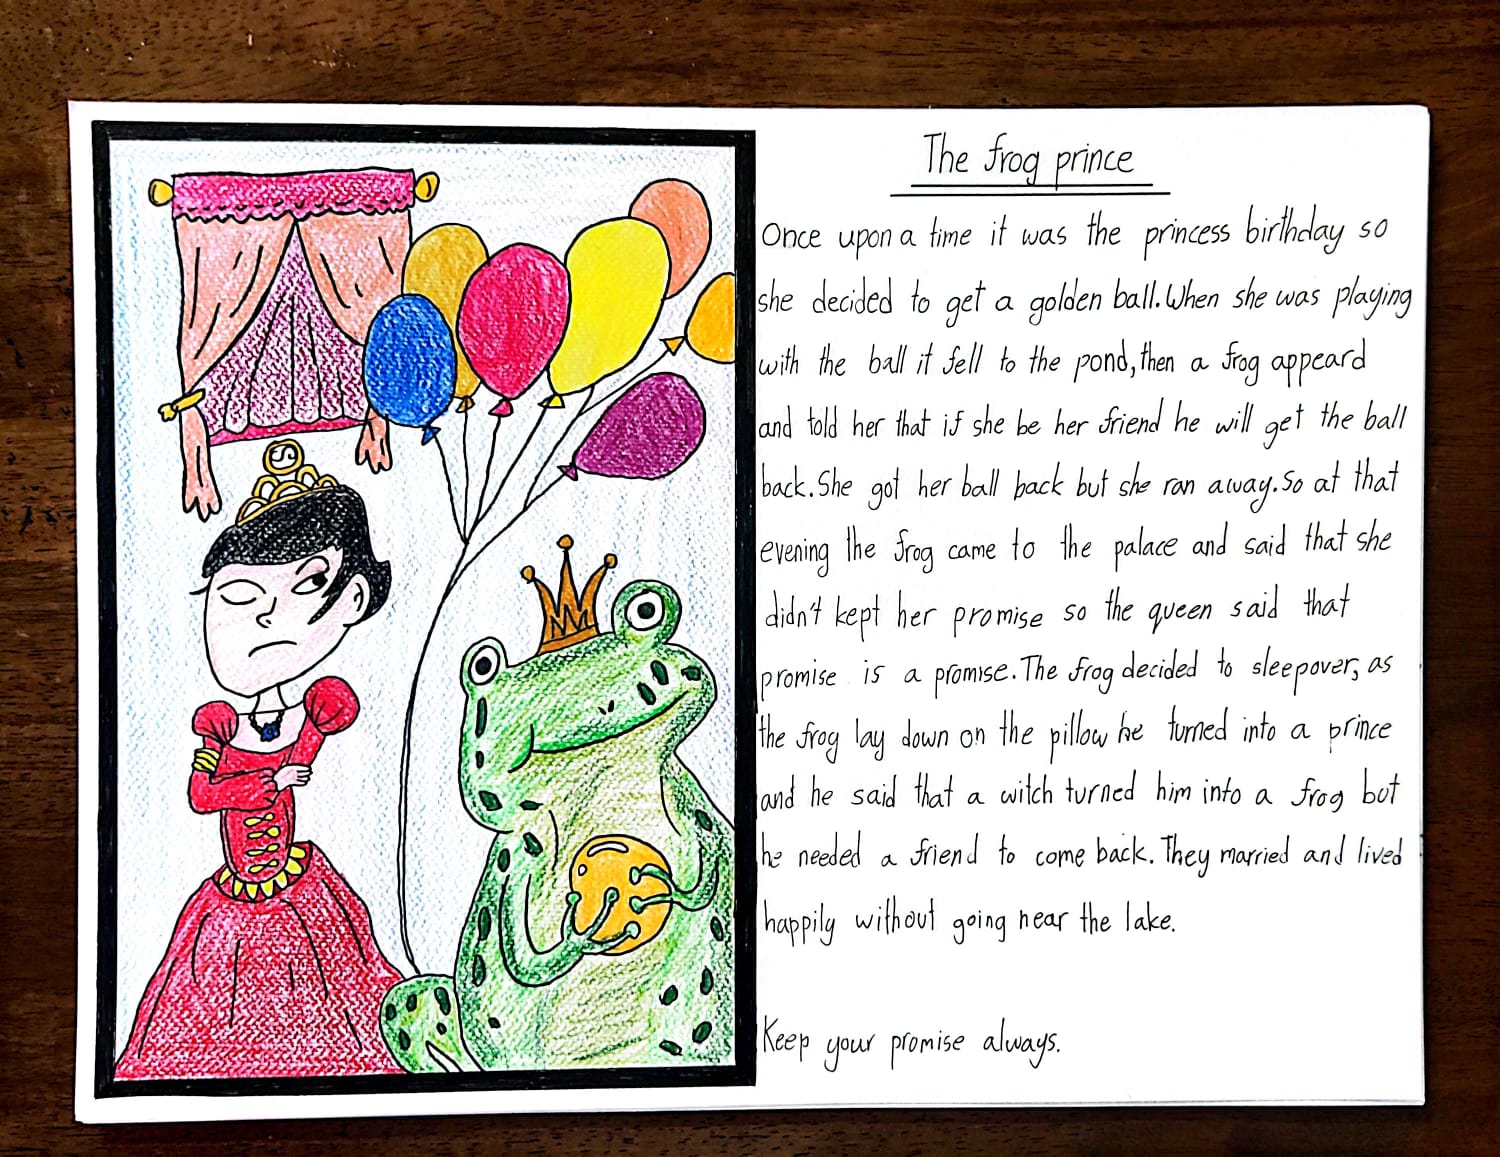 The frog prince
Once upon a time it was the princess birthday so
she decided to get a golden ball. When she was playing
with the ball it fell to the pond, then a frog appeard
and told her that if she be her friend he will get the ball
back. She got her ball back but she ran away. So at that
evening the frog came to the palace and said that she
didn't kept her promise so the queen said that
promise is a promise. The frog decided to sleepover, as
the frog lay down on the pillow he turned into a prince
and he said that a witch turned him into a frog but
he needed a friend to come back. They married and lived
happily without going near the lake.
Keep your promise always.